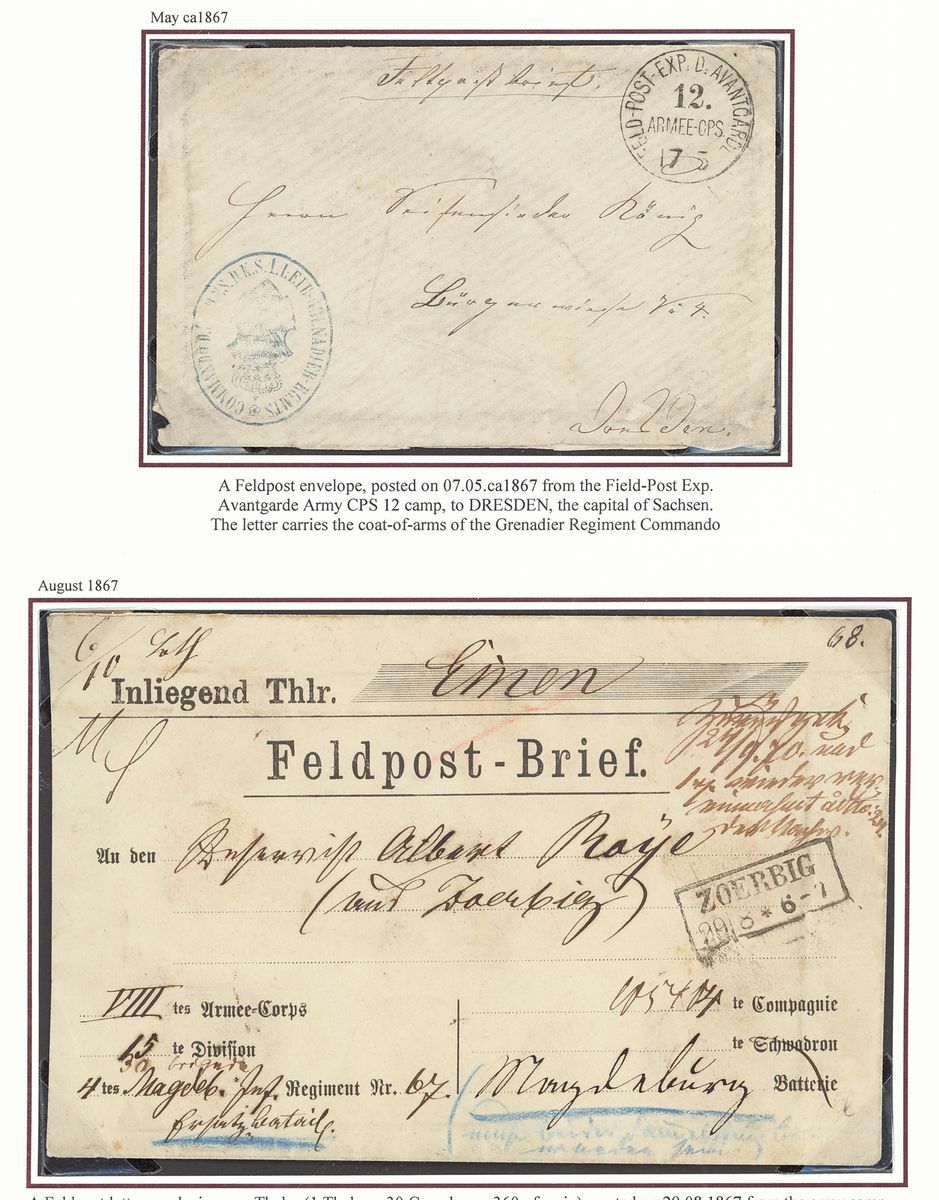 May ca1867
Feldpostbrief.
FELD-POST-EXP. D. AVANTGARDE
12.
ARMEE-CPS.
17 5
Herrn Seifensieder König
Bürgerwiese No 4.
COMMANDO D. S. 1. LEIB-GRENADIER-RGMTS
Dresden.
A Feldpost envelope, posted on 07.05.ca1867 from the Field-Post Exp.
Avantgarde Army CPS 12 camp, to DRESDEN, the capital of Sachsen.
The letter carries the coat-of-arms of the Grenadier Regiment Commando
August 1867
Loth
68.
Inliegend Thlr. Einen
Feldpost-Brief.
An den Reservist Albert Roÿe
(aus Zoerbig)
ZOERBIG
29 8 * 6-7
VIII tes Armee-Corps
te Compagnie
15 te Division
te Schwadron
30 brigade
4 tes Magdeb. Inf. Regiment Nr. 67.
Magdeburg Batterie
Ersatz Batail.